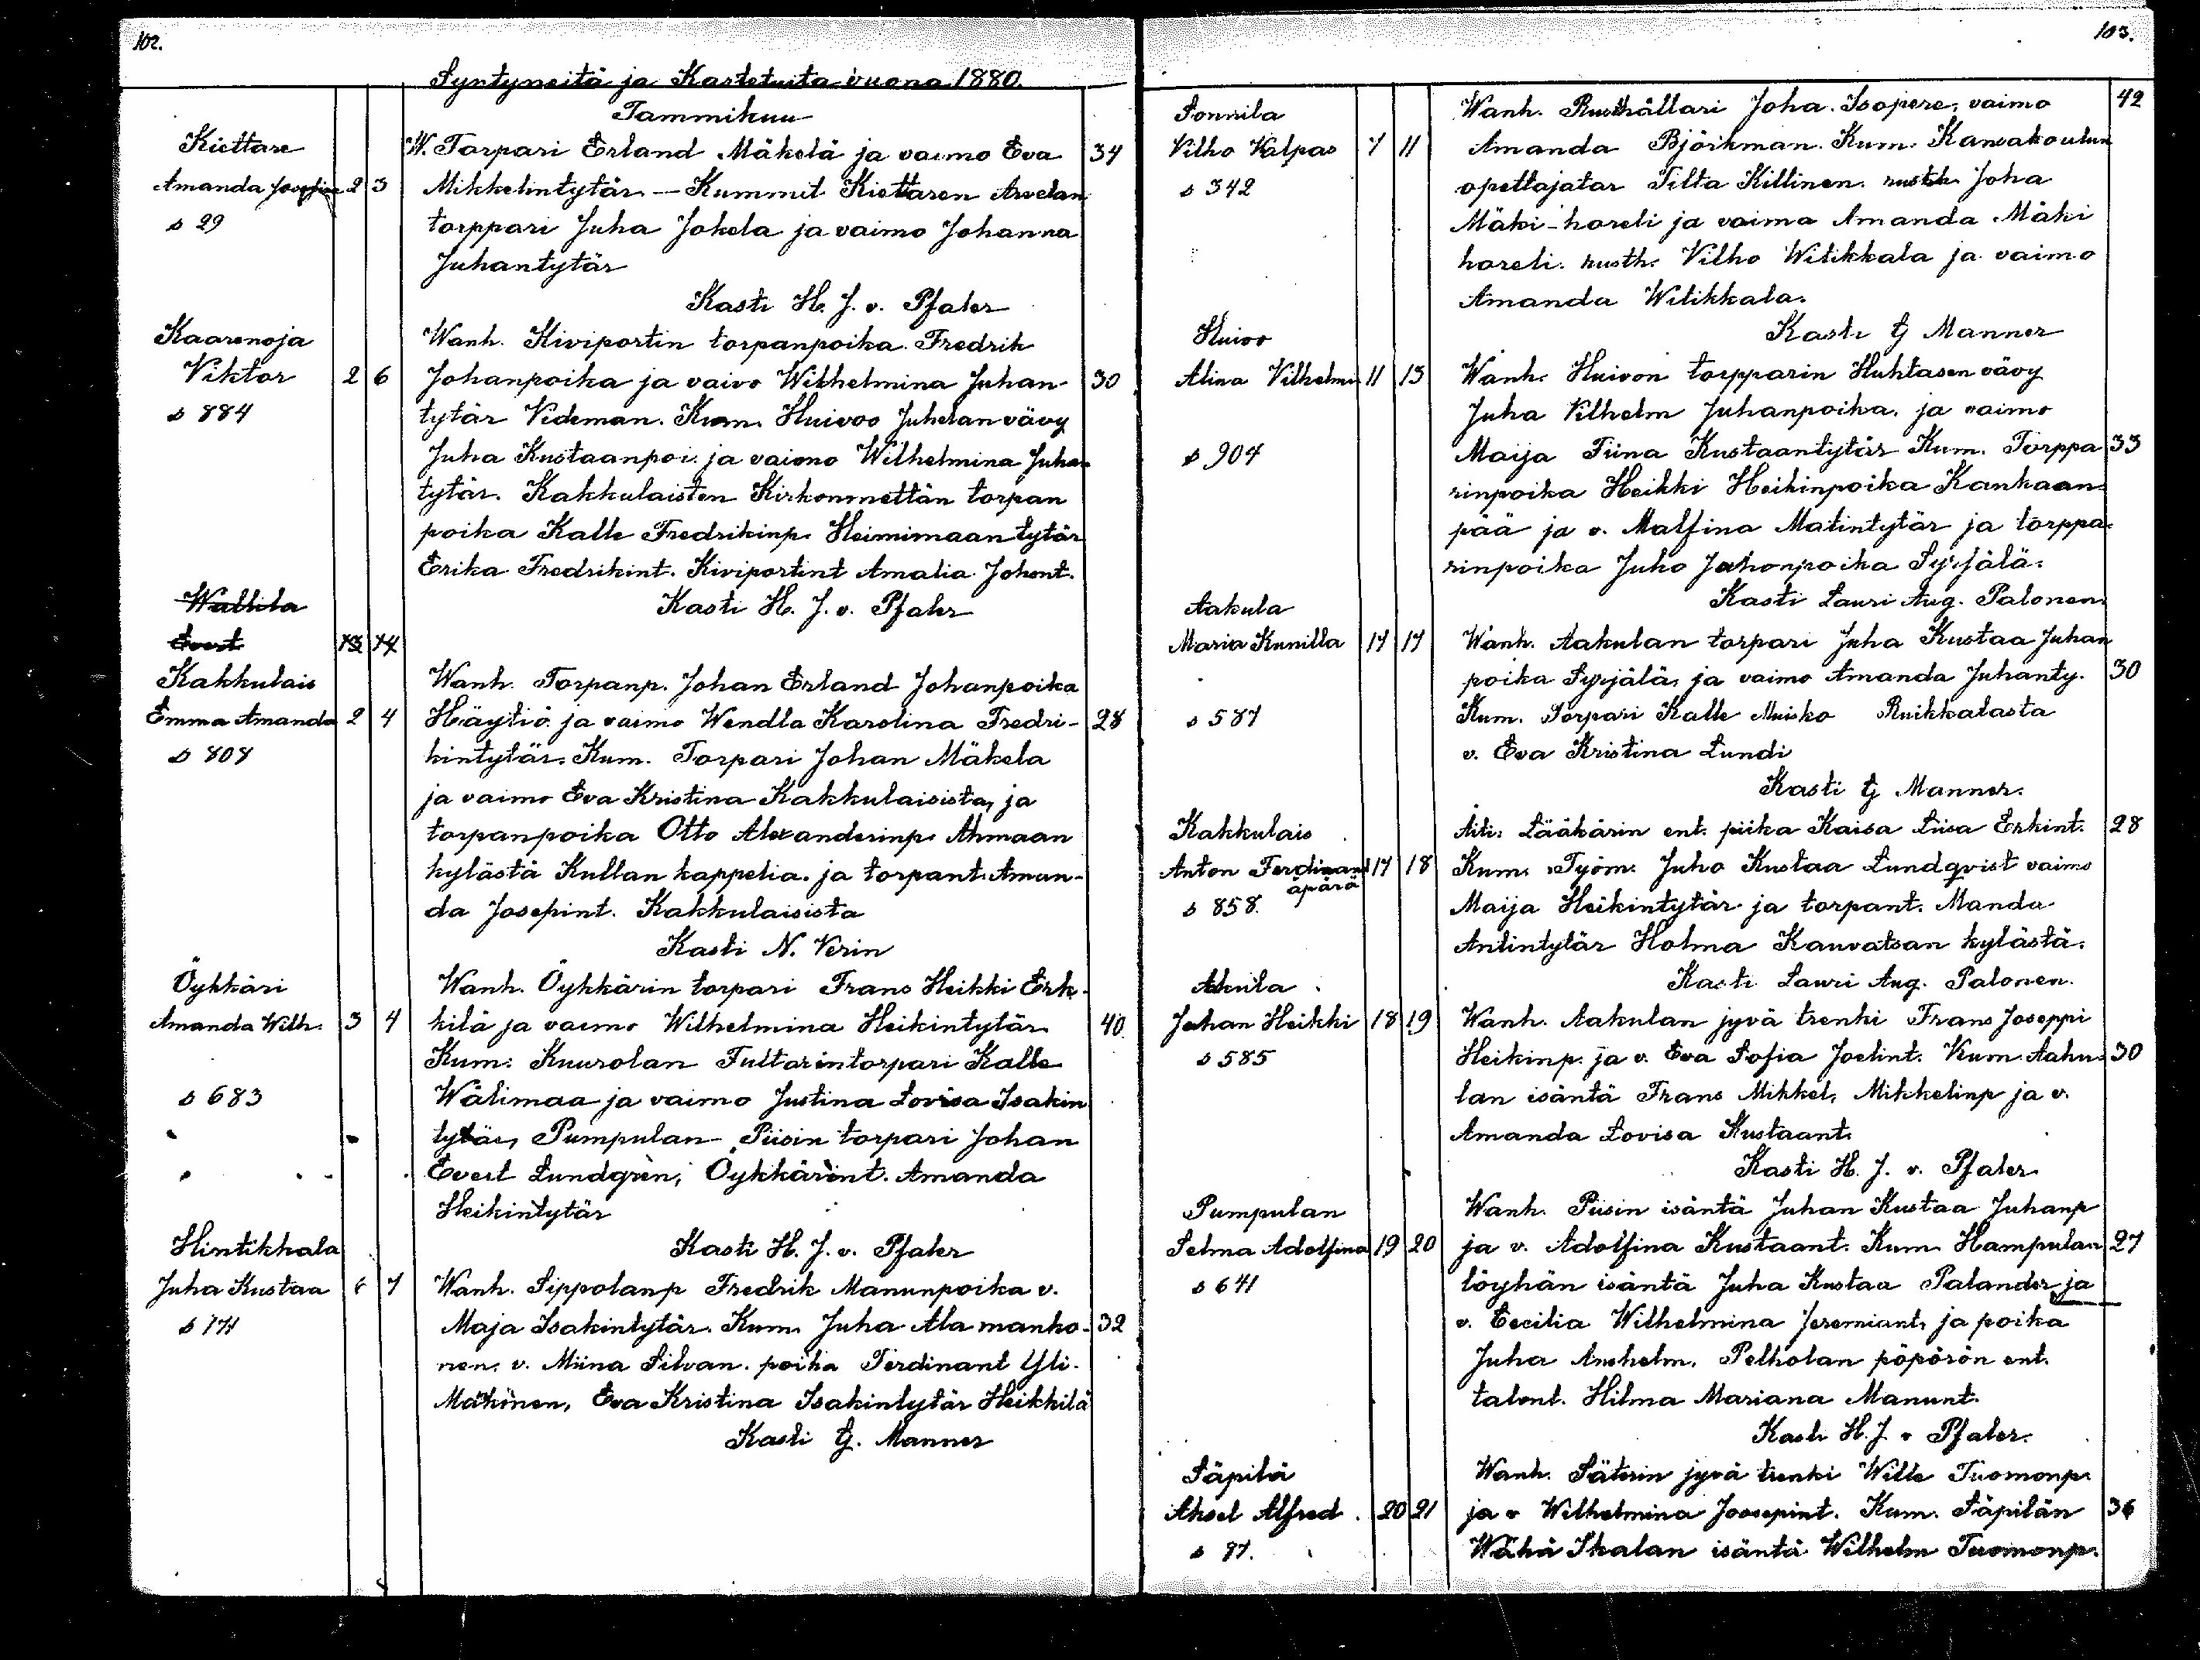 102.
Syntyneitä ja Kastetuita vuona 1880.
Tammikuu
Kiettare
W. Torpari Erland Mäkelä ja vaimo Eva 34
Amanda Josefina 2 3 Mikkelintytär — Kummit Kiettaren Arvelan
s 29 torppari Juha Jokela ja vaimo Johanna
Juhantytär
Kasti H. J. v. Pfaler
Kaarenoja Wanh. Kiviportin torpanpoika Fredrik
Viktor 2 6 Johanpoika ja vaivo Wilhelmina Juhan- 30
s 884 tytär Videman. Kum. Huivoo Juhelan vävy
Juha Kustaanpoi. ja vaimo Wilhelmina Juhan
tytär. Kakkulaisten Kirkonmettän torpan
poika Kalle Fredrikinp. Heinimaan tytär
Erika Fredrikint. Kiviportint Amalia Johent.
Wallila Kasti H. J. v. Pfaler
Evert 13 14
Kakkulais Wanh. Torpanp. Johan Erland Johanpoika
Emma Amanda 2 4 Häytiö ja vaimo Wendla Karolina Fredri- 28
s 808 kintytär. Kum. Torpari Johan Mäkela
ja vaimo Eva Kristina Kakkulaisista, ja
torpanpoika Otto Alexanderinp. Ahmaan
kylästä Kullan kappelia. ja torpant. Aman-
da Josepint. Kakkulaisista
Kasti N. Verin
Öykkäri Wanh. Öykkärin torpari Frans Heikki Erk-
Amanda Wilh. 3 4 kilä ja vaimo Wilhelmina Heikintytär 40
Kum: Kuurolan Tultarintorpari Kalle
s 683 Wälimaa ja vaimo Justina Lovisa Isakin
tytär, Pumpulan Piisin torpari Johan
Evert Lundgrèn, Öykkärint. Amanda
Heikintytär
Hintikkala Kasti H. J. v. Pfaler
Juha Kustaa 6 7 Wanh. Sippolanp Fredrik Manunpoika v.
s 171 Maja Isakintytär. Kum. Juha Ala manko- 32
nen. v. Miina Silvan. poika Ferdinant Yli-
Eva Kristina Isakintytär Heikkilä
Kasti G. Manner
103.
Sonnila Wanh. Rusthållari Joha. Isopere, vaimo 42
Vilho Kalpas 7 11 Amanda Björkman. Kum. Kansakoulun
s 342 opettajatar Tilta Killinen. rusth. Joha
Mäki-horeli ja vaimo Amanda Mäki
horeli. rusth. Vilho Witikkala ja vaimo
Amanda Witikkala.
Huivo Kasti G Manner
Alina Vilhelmi 11 13 Wanh. Huivon torpparin Huhtasen vävy
Juha Vilhelm Juhanpoika. ja vaimo
s 904 Maija Tiina Kustaantytär Kum. Torppa 33
rinpoika Heikki Heikinpoika Kankaan-
pää ja v. Malfina Matintytär ja torppa-
rinpoika Juho Juhonpoika Syrjälä.
Aakula Kasti Lauri Aug. Palonen.
Maria Kunilla 17 17 Wanh. Aakulan torpari Juha Kustaa Juhan
poika Syrjälä, ja vaimo Amanda Juhanty. 30
s 587 Kum. Torpari Kalle Muisko Ruikkalasta
v. Eva Kristina Lundi
Kasti G Manner.
Kakkulais Äiti: Lääkärin ent. piika Kaisa Liisa Erkint. 28
Anton Ferdinand 17 18 Kum. Työm. Juho Kustaa Lundqvist vaimo
äpärä
s 858. Maija Heikintytär ja torpant. Manda
Antintytär Holma Kauvatsan kylästä.
Akula Kasti Lauri Aug. Palonen.
Johan Heikki 18 19 Wanh. Aakulan jyvä trenki Frans Joseppi
s 585 Heikinp. ja v. Eva Sofia Joelint. Kum. Aaku- 30
lan isäntä Frans Mikkel, Mikkelinp ja v.
Amanda Lovisa Kustaant.
Kasti H. J. v. Pfaler.
Pumpulan Wanh. Piisin isäntä Juhan Kustaa Juhanp
Selma Adolfina 19 20 ja v. Adolfina Kustaant. Kum. Hampulan 27
s 641 löyhän isäntä Juha Kustaa Palander ja
v. Cecilia Wilhelmina Jeremiant. ja poika
Juha Anshelm. Pelholan pöpörön ent.
talont. Hilma Mariana Manunt.
Kasti H. J. v Pfaler.
Säpilä Wanh. Säterin jyvä trenki Wille Tuomonp.
Aksel Alfred 20 21 ja v Wilhelmina Joosepint. Kum. Säpilän 36
s 97. Wähä Skalan isäntä Wilhelm Tuomonp.